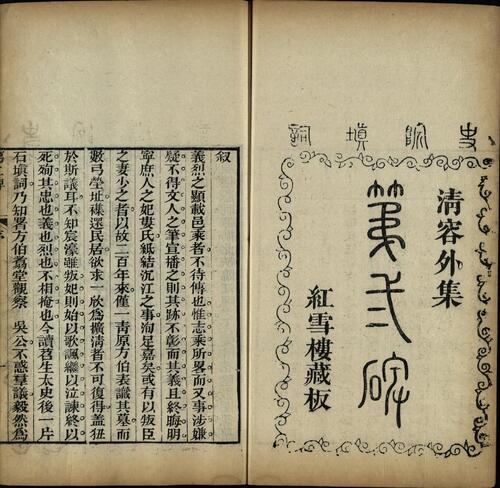 史院填詞
清容外集
第二碑
紅雪樓藏板
叙
義烈之顯載邑乘者不待傳也惟志乘所畧而又事涉嫌
疑不得文人之筆宣播之則其跡不彰而其義且終晦明
寧庶人之妃婁氏紙結沉江之事洵足嘉矣或有以叛臣
之妻少之者以故二百年來僅一青原方伯表識其墓而
數弓塋址襍還民居欲求一欣爲擴清者不可復得蓋狃
於斯議耳不知宸濠雖叛妃則始以歌諷繼以泣諫終以
死殉其忠也義也烈也不相掩也今讀苕生太史後一片
石填詞乃知署方伯爲堂觀察 吳公不惑羣議毅然爲